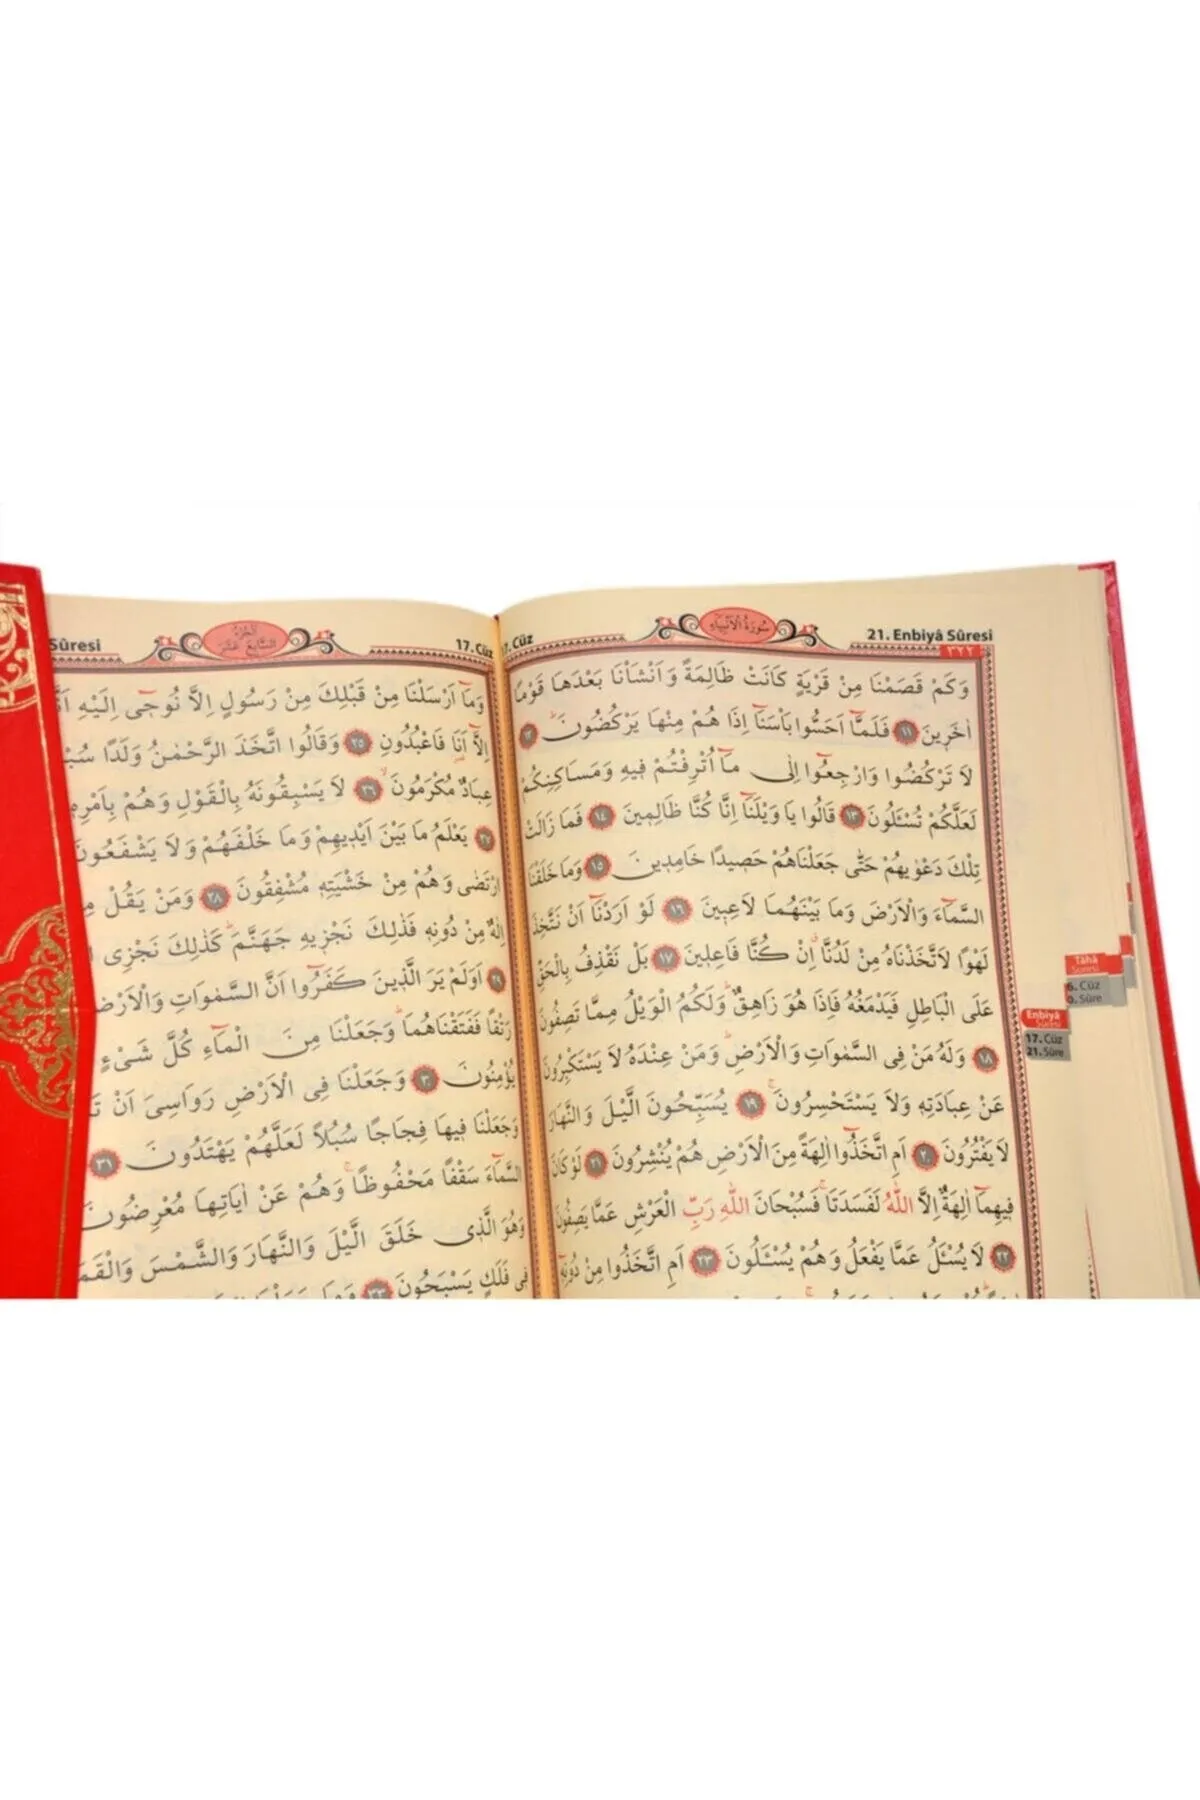 21. Enbiyâ Sûresi
سُورَةُ الْاَنْبِيَاءِ
Cüz
٣٢٢
وَكَمْ قَصَمْنَا مِنْ قَرْيَةٍ كَانَتْ ظَالِمَةً وَاَنْشَأْنَا بَعْدَهَا قَوْمًا
اٰخَرٖينَ ﴿١١﴾ فَلَمَّٓا اَحَسُّوا بَأْسَنَٓا اِذَا هُمْ مِنْهَا يَرْكُضُونَۜ ﴿١٢﴾
لَا تَرْكُضُوا وَارْجِعُٓوا اِلٰى مَٓا اُتْرِفْتُمْ فٖيهِ وَمَسَاكِنِكُمْ
لَعَلَّكُمْ تُسْـَٔلُونَ ﴿١٣﴾ قَالُوا يَا وَيْلَنَٓا اِنَّا كُنَّا ظَالِمٖينَ ﴿١٤﴾ فَمَا زَالَتْ
تِلْكَ دَعْوٰيهُمْ حَتّٰى جَعَلْنَاهُمْ حَصٖيدًا خَامِدٖينَ ﴿١٥﴾ وَمَا خَلَقْنَا
السَّمَٓاءَ وَالْاَرْضَ وَمَا بَيْنَهُمَا لَاعِبٖينَ ﴿١٦﴾ لَوْ اَرَدْنَٓا اَنْ نَتَّخِذَ
لَهْوًا لَاتَّخَذْنَاهُ مِنْ لَدُنَّاۗ اِنْ كُنَّا فَاعِلٖينَ ﴿١٧﴾ بَلْ نَقْذِفُ بِالْحَقِّ
عَلَى الْبَاطِلِ فَيَدْمَغُهُ فَاِذَا هُوَ زَاهِقٌۜ وَلَكُمُ الْوَيْلُ مِمَّا تَصِفُونَ
﴿١٨﴾ وَلَهُ مَنْ فِى السَّمٰوَاتِ وَالْاَرْضِۜ وَمَنْ عِنْدَهُ لَا يَسْتَكْبِرُونَ
عَنْ عِبَادَتِهٖ وَلَا يَسْتَحْسِرُونَۚ ﴿١٩﴾ يُسَبِّحُونَ الَّيْلَ وَالنَّهَارَ
لَا يَفْتُرُونَ ﴿٢٠﴾ اَمِ اتَّخَذُٓوا اٰلِهَةً مِنَ الْاَرْضِ هُمْ يُنْشِرُونَ ﴿٢١﴾ لَوْ كَانَ
فٖيهِمَٓا اٰلِهَةٌ اِلَّا اللّٰهُ لَفَسَدَتَاۚ فَسُبْحَانَ اللّٰهِ رَبِّ الْعَرْشِ عَمَّا يَصِفُونَ
﴿٢٢﴾ لَا يُسْـَٔلُ عَمَّا يَفْعَلُ وَهُمْ يُسْـَٔلُونَ ﴿٢٣﴾ اَمِ اتَّخَذُوا مِنْ دُونِهٖٓ
Tâhâ
Sûresi
6. Cüz
Sûre
Enbiyâ
Sûresi
17. Cüz
21. Sûre
17. Cüz
اَلْجُزْءُ السَّابِعَ عَشَرَ
Sûresi
وَمَٓا اَرْسَلْنَا مِنْ قَبْلِكَ مِنْ رَسُولٍ اِلَّا نُوحٖٓى اِلَيْهِ
اِلَّٓا اَنَا۬ فَاعْبُدُونِ ﴿٢٥﴾ وَقَالُوا اتَّخَذَ الرَّحْمٰنُ وَلَدًا
عِبَادٌ مُكْرَمُونَۙ ﴿٢٦﴾ لَا يَسْبِقُونَهُ بِالْقَوْلِ وَهُمْ بِاَمْرِهٖ
﴿٢٧﴾ يَعْلَمُ مَا بَيْنَ اَيْدٖيهِمْ وَمَا خَلْفَهُمْ وَلَا يَشْفَعُونَ
ارْتَضٰى وَهُمْ مِنْ خَشْيَتِهٖ مُشْفِقُونَ ﴿٢٨﴾ وَمَنْ يَقُلْ
اِلٰهٌ مِنْ دُونِهٖ فَذٰلِكَ نَجْزٖيهِ جَهَنَّمَۜ كَذٰلِكَ نَجْزِى
﴿٢٩﴾ اَوَلَمْ يَرَ الَّذٖينَ كَفَرُٓوا اَنَّ السَّمٰوَاتِ وَالْاَرْضَ
رَتْقًا فَفَتَقْنَاهُمَاۜ وَجَعَلْنَا مِنَ الْمَٓاءِ كُلَّ شَىْءٍ
يُؤْمِنُونَ ﴿٣٠﴾ وَجَعَلْنَا فِى الْاَرْضِ رَوَاسِىَ اَنْ
وَجَعَلْنَا فٖيهَا فِجَاجًا سُبُلًا لَعَلَّهُمْ يَهْتَدُونَ ﴿٣١﴾
السَّمَٓاءَ سَقْفًا مَحْفُوظًاۚ وَهُمْ عَنْ اٰيَاتِهَا مُعْرِضُونَ
وَهُوَ الَّذٖى خَلَقَ الَّيْلَ وَالنَّهَارَ وَالشَّمْسَ وَالْقَمَرَ
فٖى فَلَكٍ يَسْبَحُونَ ﴿٣٣﴾